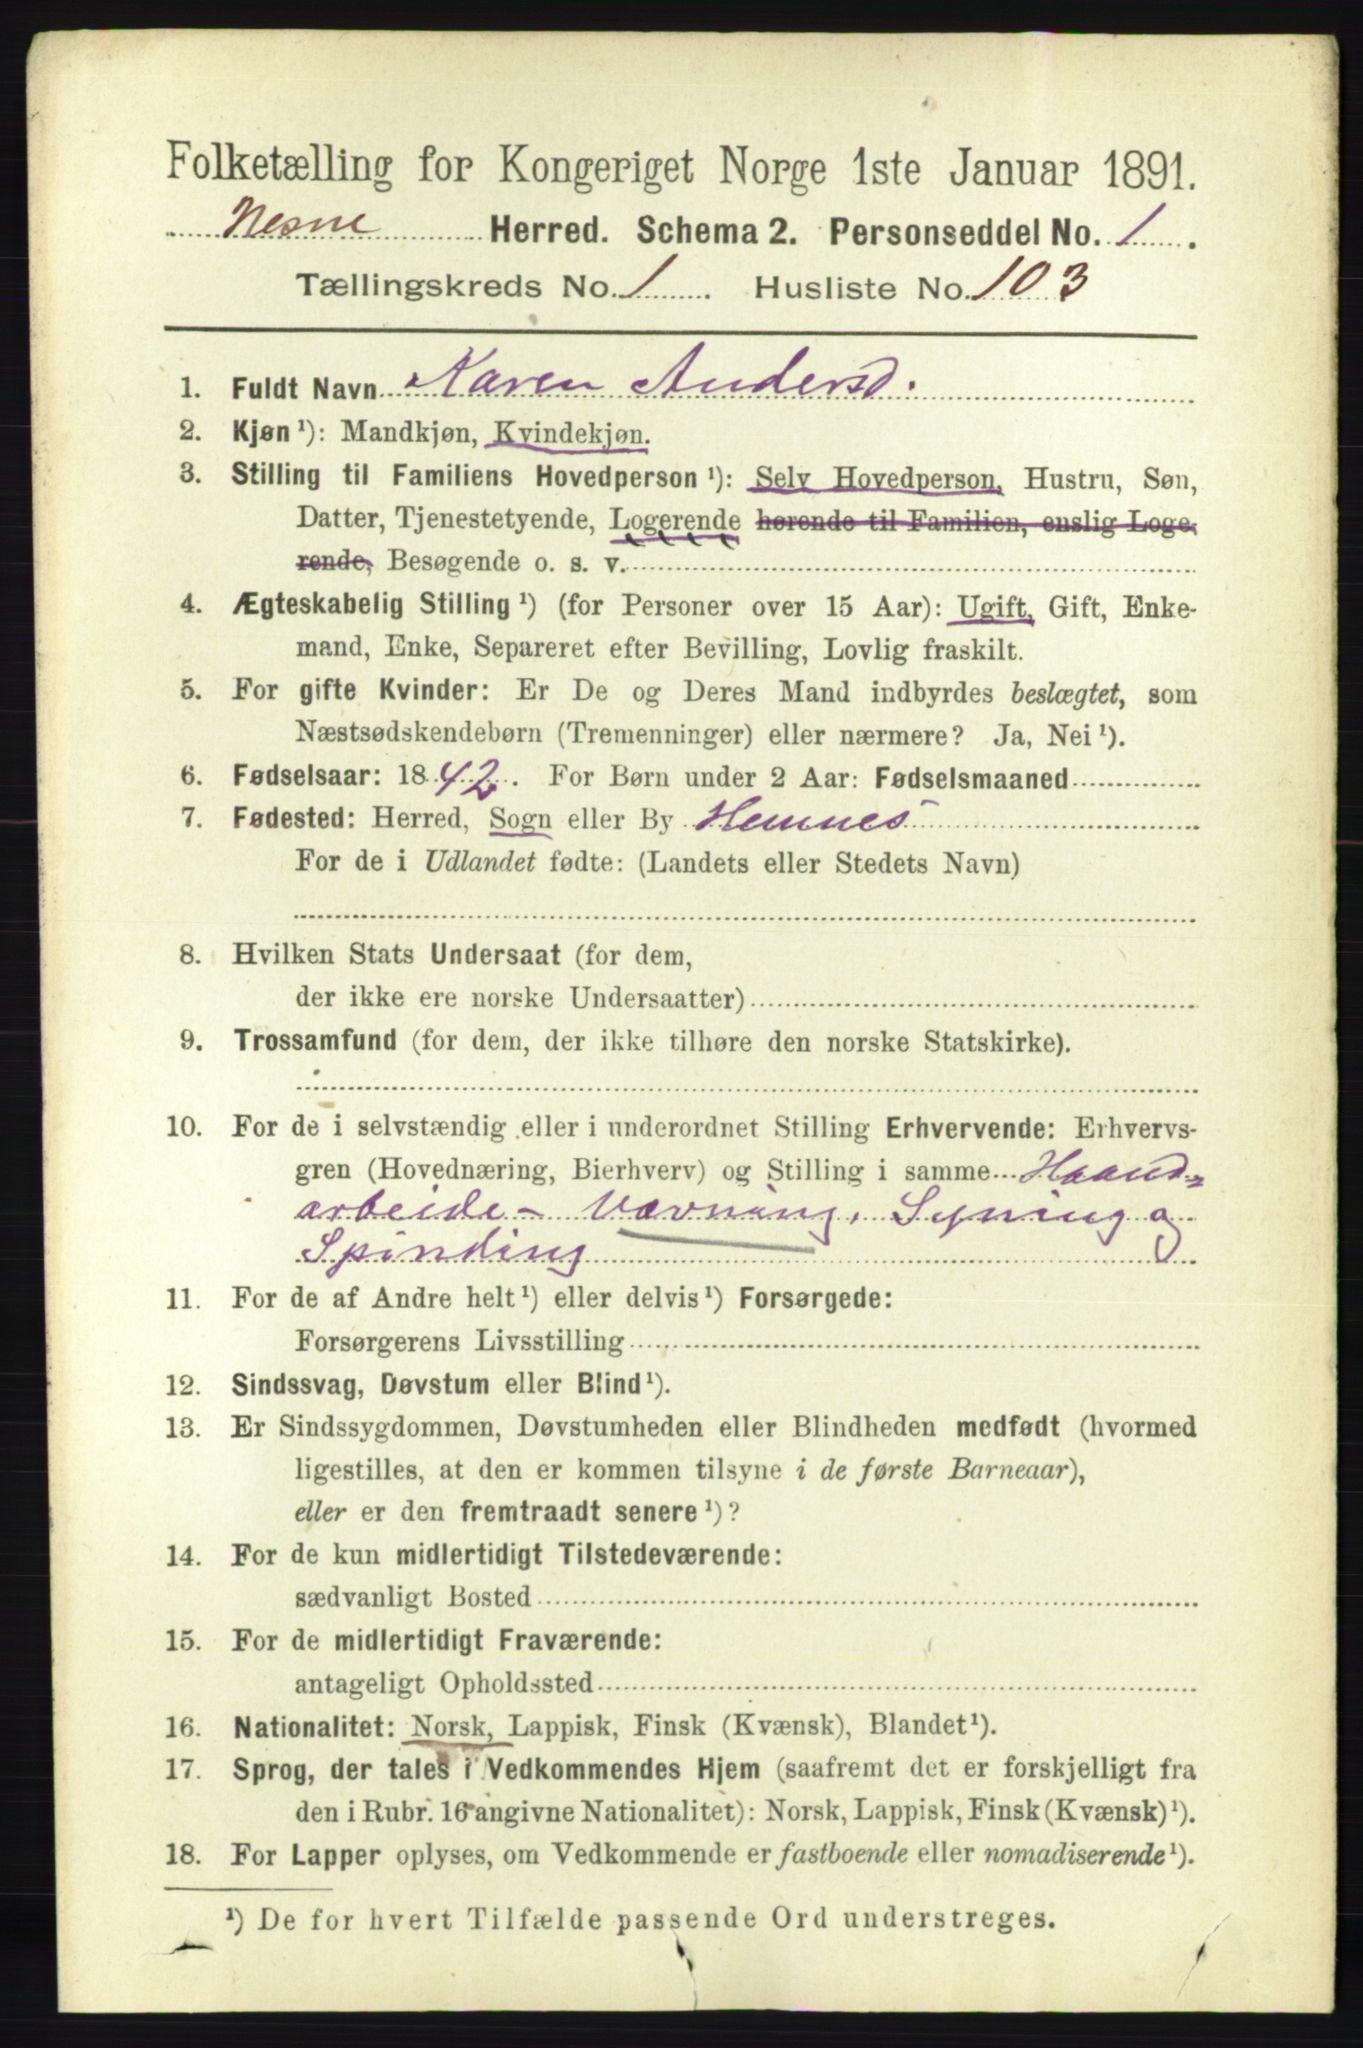 Folketælling for Kongeriget Norge 1ste Januar 1891.
Nesne Herred. Schema 2. Personseddel No. 1.
Tællingskreds No. 1. Husliste No. 103
1. Fuldt Navn Karen Andersd.
2. Kjøn ¹): Mandkjøn, Kvindekjøn.
3. Stilling til Familiens Hovedperson ¹): Selv Hovedperson, Hustru, Søn,
Datter, Tjenestetyende, Logerende hørende til Familien, enslig Loge-
rende, Besøgende o. s. v.
4. Ægteskabelig Stilling ¹) (for Personer over 15 Aar): Ugift, Gift, Enke-
mand, Enke, Separeret efter Bevilling, Lovlig fraskilt.
5. For gifte Kvinder: Er De og Deres Mand indbyrdes beslægtet, som
Næstsødskendebørn (Tremenninger) eller nærmere? Ja, Nei ¹).
6. Fødselsaar: 1842. For Børn under 2 Aar: Fødselsmaaned
7. Fødested: Herred, Sogn eller By Hemnes
For de i Udlandet fødte: (Landets eller Stedets Navn)
8. Hvilken Stats Undersaat (for dem,
der ikke ere norske Undersaatter)
9. Trossamfund (for dem, der ikke tilhøre den norske Statskirke).
10. For de i selvstændig eller i underordnet Stilling Erhvervende: Erhvervs-
gren (Hovednæring, Bierhverv) og Stilling i samme Haand-
arbeide - Vævning, Syning og
Spinding
11. For de af Andre helt ¹) eller delvis ¹) Forsørgede:
Forsørgerens Livsstilling
12. Sindssvag, Døvstum eller Blind ¹).
13. Er Sindssygdommen, Døvstumheden eller Blindheden medfødt (hvormed
ligestilles, at den er kommen tilsyne i de første Barneaar),
eller er den fremtraadt senere ¹)?
14. For de kun midlertidigt Tilstedeværende:
sædvanligt Bosted
15. For de midlertidigt Fraværende:
antageligt Opholdssted
16. Nationalitet: Norsk, Lappisk, Finsk (Kvænsk), Blandet ¹).
17. Sprog, der tales i Vedkommendes Hjem (saafremt det er forskjelligt fra
den i Rubr. 16 angivne Nationalitet): Norsk, Lappisk, Finsk (Kvænsk) ¹).
18. For Lapper oplyses, om Vedkommende er fastboende eller nomadiserende ¹).
¹) De for hvert Tilfælde passende Ord understreges.